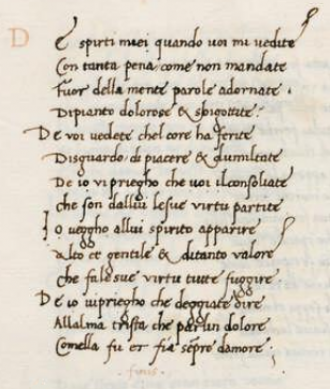 D E spirti miei quando voi mi vedite
Con tanta pena come non mandate
Fuor della mente parole adornate
Dipianto dolorose & sbigottite.
De voi vedete chel core ha ferite
Disguardo di piacere & dumiltate
De io vi priegho che voi ilconsoliate
che son dallui lesue virtu partite
Io veggho allui spirito apparire
Alto et gentile & ditanto valore
che fa lesue virtu tutte fuggire
De io vipriegho che deggiate dire
Allalma trista che parlun dolore
Comella fu et fia sempre damore.
finis